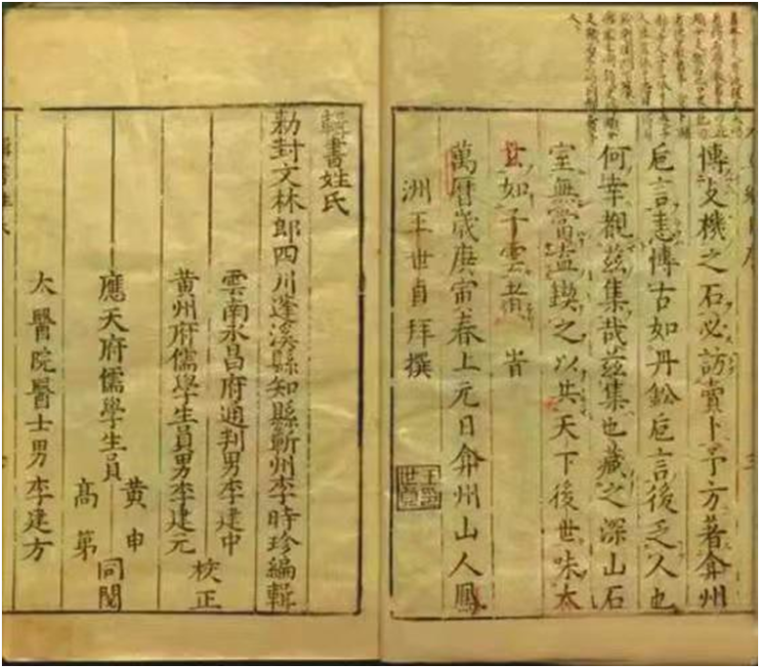 博支機之石必訪賣卜予方著弇州
卮言恚博古如丹鉛卮言後乏人也
何幸覯茲集哉茲集也藏之深山石
室無當盍鍥之以共天下後世味太
玄如子雲者 旹
萬曆歲庚寅春上元日弇州山人鳳
洲王世貞拜撰
輯書姓氏
勑封文林郎四川蓬溪縣知縣蘄州李時珍編輯
雲南永昌府通判男李建中
黃州府儒學生員男李建元
校正
應天府儒學生員
黃申
高第
同閱
太醫院醫士男李建方